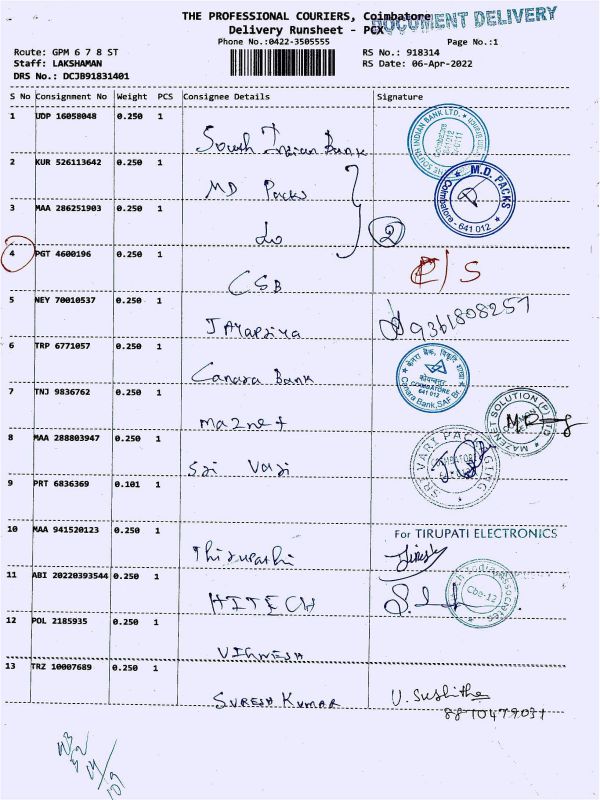 THE PROFESSIONAL COURIERS, Coimbatore
DOCUMENT DELIVERY
Delivery Runsheet - PCX
Phone No.:0422-3505555 Page No.:1
Route: GPM 6 7 8 ST RS No.: 918314
Staff: LAKSHAMAN RS Date: 06-Apr-2022
DRS No.: DCJB91831401
S No Consignment No Weight PCS Consignee Details Signature
1 UDP 16058048 0.250 1
South Indian Bank
THE SOUTH INDIAN BANK LTD.
2 KUR 526113642 0.250 1
MD Packs
M.D. PACKS
Coimbatore - 641 012
3 MAA 286251903 0.250 1
do
2
4 PGT 4600196 0.250 1
CSB
5 NEY 70010537 0.250 1
Jayapriya
9361808257
6 TRP 6771057 0.250 1
Canara Bank
केनरा बैंक
कोयम्बत्तूर
COIMBATORE
641 012
Canara Bank, SAF Br.
7 TNJ 9836762 0.250 1
maznet
MAZNET SOLUTION (P) LTD
8 MAA 288803947 0.250 1
Sri Vari
SREE VARY PACKAGING
9 PRT 6836369 0.101 1
10 MAA 941520123 0.250 1
Thirupathi
For TIRUPATI ELECTRONICS
11 ABI 20220393544 0.250 1
HITECH
Cbe-12
12 POL 2185935 0.250 1
VIGNESH
13 TRZ 10007689 0.250 1
SURESH KUMAR
U. Sushitha
8870479031